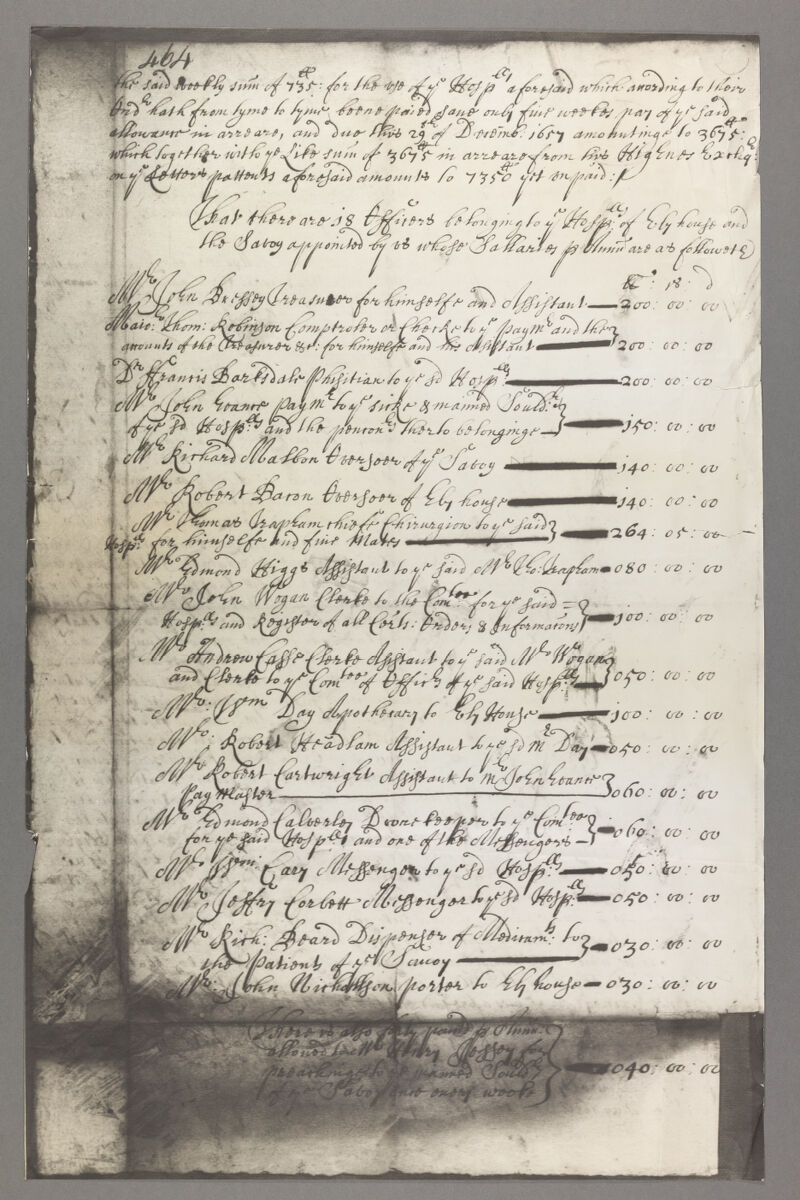 464
the said weekly sum of 735ˡⁱ: for the use of yᵉ Hospˡˡ aforesaid which acording to their
Ordʳ hath from tyme to tyme beene paied save only five weekes pay of yᵉ said
allowance in arreare, and due this 29ᵗʰ of Decemb: 1657 amountinge to 3675ˡⁱ:
which together with ye Like sum of 3675ˡⁱ in arreare from his Highnes Excheqʳ:
on yᵉ Letters pattents aforesaid amounts to 7350ˡⁱ yet unpaid:
That there are 18 Officers belonging to yᵉ Hospˡˡˢ of Ely house and
the Savoy appointed by us whose Sallaries p Annū are as followeth
li s d
Mʳ John Bressey Treasurer for himselfe and Assistant 200: 00: 00
Maioʳ: Thom: Robinson Comptroler or Checke to yᵉ Paymʳ and the
acounts of the Treasurer &c: for himselfe and his Assistant 200: 00: 00
Dʳ Francis Barksdale Phisitian to yᵉ sd Hospˡˡˢ 200: 00: 00
Mʳ John Paymʳ to yᵉ sicke & maimed Souldʳˢ
of yᵉ sd Hospˡˡˢ and the penconʳˢ therto belonginge 150: 00: 00
Mʳ Richard Malbon Overseer of yᵉ Savoy 140: 00: 00
Mʳ Robert Bacon Overseer of Ely house 140: 00: 00
Mʳ Thomas Trapham chiefe Chirurgion to yᵉ said
Hospˡˢ for himselfe and five Mates 264: 05: 00
Mʳ Edmond Higgs Assistant to yᵉ said Mʳ Tho: Trapham 080: 00: 00
Mʳ John Wogan Clerke to the Comᵗᵉᵉ for yᵉ said
Hospˡˡˢ and Register of all Certs: Orders & Informacons 100: 00: 00
Mʳ Andrew Casse Clerke Assistant to yᵉ said Mʳ Wogan
and Clerke to yᵉ Comᵗᵉᵉ of Officʳˢ of yᵉ said Hospˡˡˢ 050: 00: 00
Mʳ: Wᵐ Day Apothecary to Ely House 100: 00: 00
Mʳ: Robert Headlam Assistant to yᵉ sd Mʳ Day 050: 00: 00
Mʳ Robert Cartwright Assistant to Mʳ John
Pay Master 060: 00: 00
Mʳ Edmond Calverley Doorekeeper to yᵉ Comᵗᵉᵉ
for yᵉ said Hospˡˡˢ and one of the Messengers 060: 00: 00
Mʳ Wᵐ: Cary Messenger to yᵉ sd Hospˡˡˢ 050: 00: 00
Mʳ Jeffry Corbett Messenger to yᵉ sd Hospˡˡ 050: 00: 00
Mʳ Rich: Beard Dispenser of Medicamᵗˢ to
the Patients of yᵉ Savoy 030: 00: 00
Mʳ: John Nicholson porter to Ely house 030: 00: 00
There is also forty pounds p Annū:
allowed to Mʳ Henry Jessey for
preachinge to yᵉ maimed Souldʳˢ
of yᵉ Savoy once every weeke 040: 00: 00